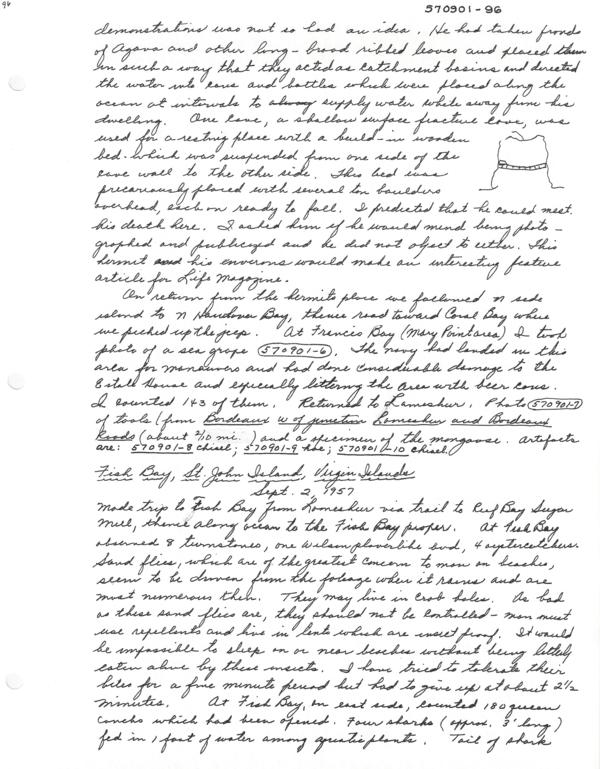 96
570901-96
demonstrations was not so bad an idea. He had taken fronds
of Agava and other long-broad ribbed leaves and placed them
in such a way that they acted as catchment basins and directed
the water into cans and bottles which were placed along the
ocean at intervals to always supply water while away from his
dwelling. One cave, a shallow surface fracture cave, was
used for a resting place with a build-in wooden
bed which was suspended from one side of the
cave wall to the other side. This bed was
precariously placed with several ton boulders
overhead, each on ready to fall. I predicted that he could meet
his death here. I asked him if he would mind being photo-
graphed and publicized and he did not object to either. This
hermit and his environs would make an interesting feature
article for Life Magazine.
On return from the hermits place we followed N side
island to N Handover Bay, thence road toward Coral Bay where
we picked up the jeep. At Francis Bay (Mary Point area) I took
photo of a sea grape (570901-6). The navy had landed in this
area for maneuvers and had done considerable damage to the
Estate House and especially littering the area with beer cans.
I counted 143 of them. Returned to Lameshur. Photo (570901-7)
of tools (from Bordeaux W of junction Lameshur and Bordeaux
Roads (about 2/10 mi.) and a specimen of the mongoose. Artifacts
are: 570901-8 chisel; 570901-9 hoe; 570901-10 chisel.
Fish Bay, St. John Island, Virgin Islands
Sept. 2, 1957
Made trip to Fish Bay from Lameshur via trail to Reef Bay Sugar
Mill, thence along ocean to the Fish Bay proper. At Fish Bay
observed 8 turnstones, one Wilson ploverlike bird, 4 oystercatchers.
Sand flies, which are of the greatest concern to man on beaches,
seem to be driven from the foleage when it rains and are
most numerous then. They may live in crab holes. As bad
as these sand flies are, they should not be controlled - man must
use repellents and live in tents which are insect proof. It would
be impossible to sleep on or near beaches without being litterly
eaten alive by these insects. I have tried to tolerate their
bites for a five minute period but had to give up at about 2 1/2
minutes. At Fish Bay, on east side, counted 180 queen
conchs which had been opened. Four sharks (approx. 3' long)
fed in 1 foot of water among aquatic plants. Tail of shark